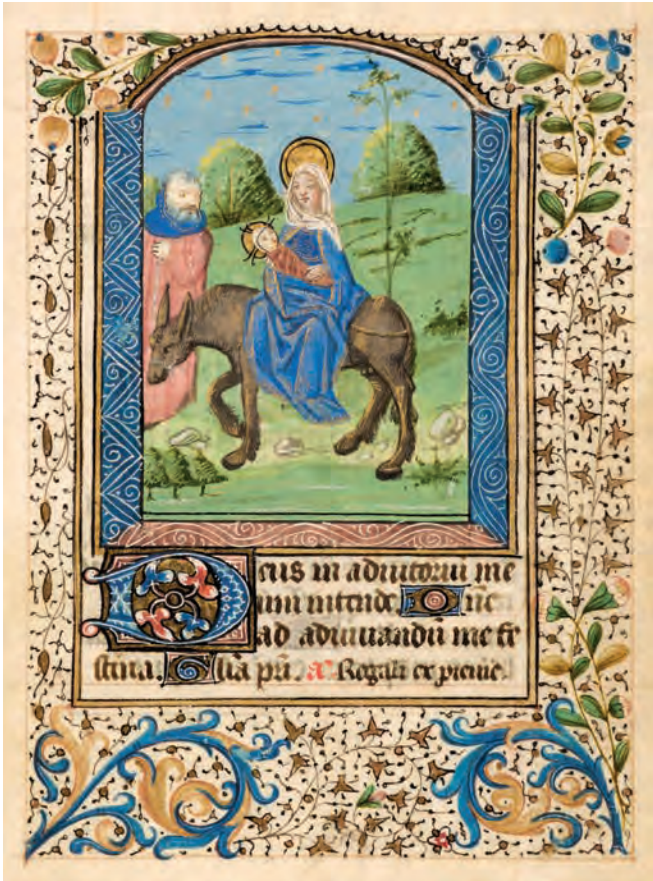 Deus in adiutoriū me
um intende. Dñe
ad adiuuandū me fe
stina. Glia pri. a Regali ex ꝓgenie